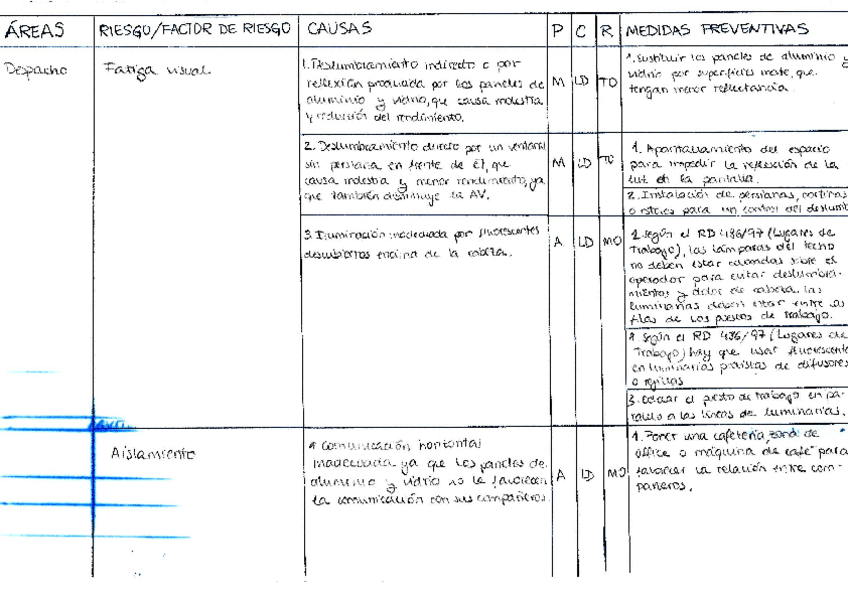 ÁREAS
RIESGO/FACTOR DE RIESGO
CAUSAS
P
C
R
MEDIDAS PREVENTIVAS
Despacho
Fatiga visual
1. Deslumbramiento indirecto o por
reflexión producida por los paneles de
aluminio y vidrio, que causa molestia
y reducción del rendimiento.
M
LD
TO
1. Sustituir los paneles de aluminio y
vidrio por superficies mate, que
tengan menor reflectancia.
2. Deslumbramiento directo por un ventanal
sin persiana en frente de él, que
causa molestia y menor rendimiento, ya
que también disminuye la AV.
M
LD
TO
1. Apantallamiento del espacio
para impedir la reflexión de la
luz en la pantalla.
2. Instalación de persianas, cortinas
o estores para un control del deslumb
3. Iluminación inadecuada por fluorescentes
descubiertos encima de la cabeza.
A
LD
MO
1. Según el RD 486/97 (Lugares de
Trabajo), las lámparas del techo
no deben estar colocadas sobre el
operador para evitar deslumbra-
mientos y dolor de cabeza. Las
luminarias deben estar entre las
filas de los puestos de trabajo.
Según el RD 486/97 (Lugares de
Trabajo) hay que usar fluorescent
en luminarias provistas de difusores
o rejillas
3. Colocar el puesto de trabajo en pa-
ralelo a las líneas de luminarias.
Aislamiento
1. Comunicación horizontal
inadecuada ya que los paneles de
aluminio y vidrio no le favorecen
la comunicación con sus compañeros.
A
LD
MO
1. Poner una cafetería, zona de
office o máquina de café para
favorecer la relación entre com-
pañeros.